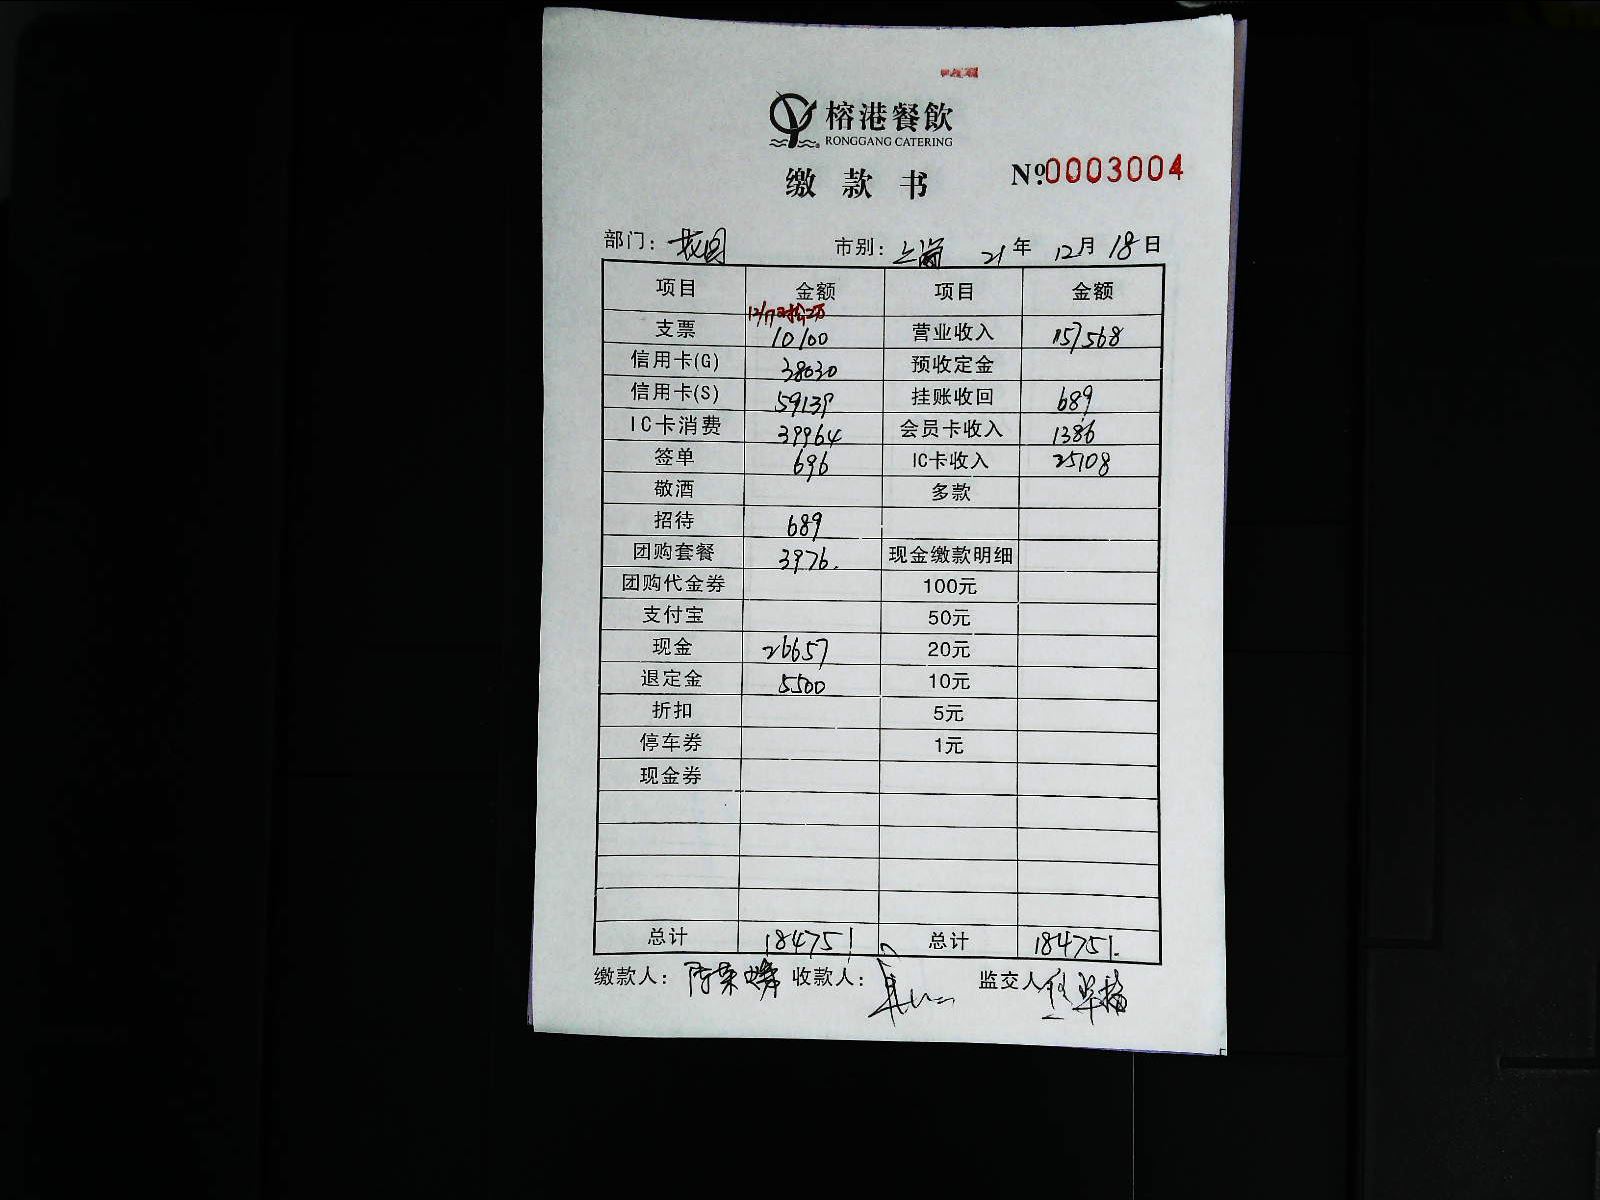 榕港餐飲
RONGGANG CATERING
缴款书 №0003004
部门: 市别: 上海 21年 12月 18日
项目 金额 项目 金额
支票 10100 营业收入 157568
信用卡(G) 38030 预收定金
信用卡(S) 59139 挂账收回 689
IC卡消费 39964 会员卡收入 1386
签单 696 IC卡收入 25108
敬酒 多款
招待 689
团购套餐 3976. 现金缴款明细
团购代金券 100元
支付宝 50元
现金 26657 20元
退定金 5500 10元
折扣 5元
停车券 1元
现金券
总计 184751 总计 184751.
缴款人: 收款人: 监交人